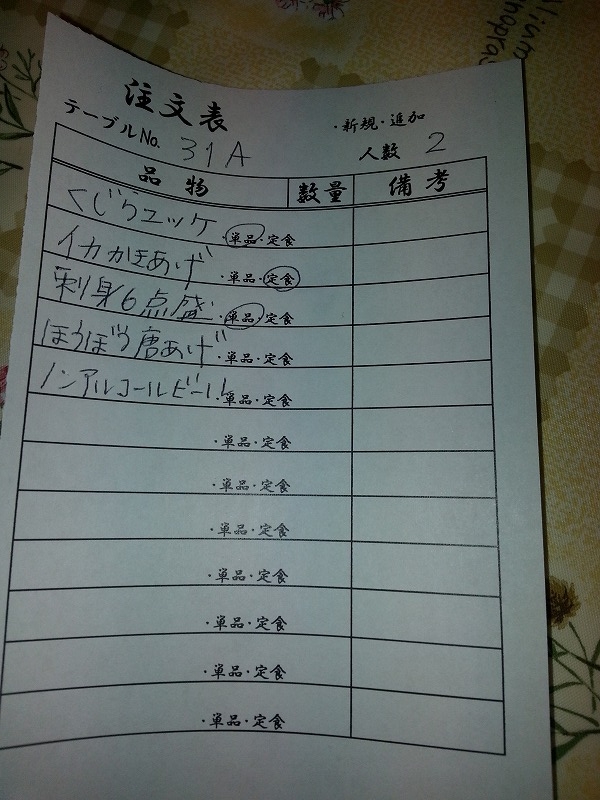 注文表
・新規・追加
テーブルNo. 31A
人数 2
品物 数量 備考
くじらユッケ ・単品・定食
イカかきあげ ・単品・定食
刺身6点盛 ・単品・定食
ほうぼう唐あげ ・単品・定食
ノンアルコールビール ・単品・定食
・単品・定食
・単品・定食
・単品・定食
・単品・定食
・単品・定食
・単品・定食
・単品・定食